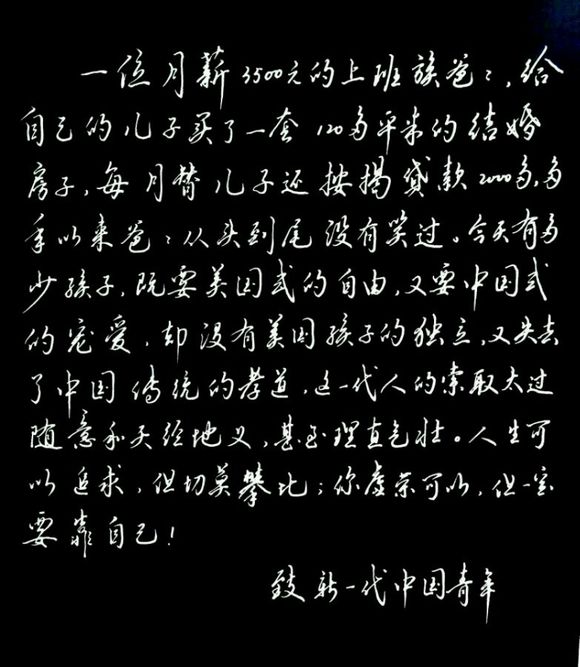 一位月薪3500元的上班族爸爸，给
自己的儿子买了一套120多平米的结婚
房子，每月替儿子还按揭贷款2000多，多
年以来爸爸从头到尾没有笑过。今天有多
少孩子，既要美国式的自由，又要中国式
的宠爱，却没有美国孩子的独立，又失去
了中国传统的孝道，这一代人的索取太过
随意和天经地义，甚至理直气壮。人生可
以追求，但切莫攀比；你虚荣可以，但一定
要靠自己！
致新一代中国青年